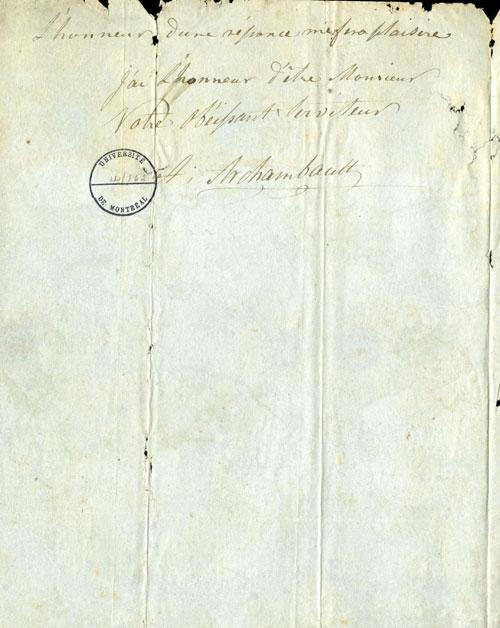 L'honneur d'une réponce me fera plaisire
j'ai L'honneur d'être Monsieur
Votre Obéissant Serviteur
Archambault
UNIVERSITÉ
DE MONTRÉAL